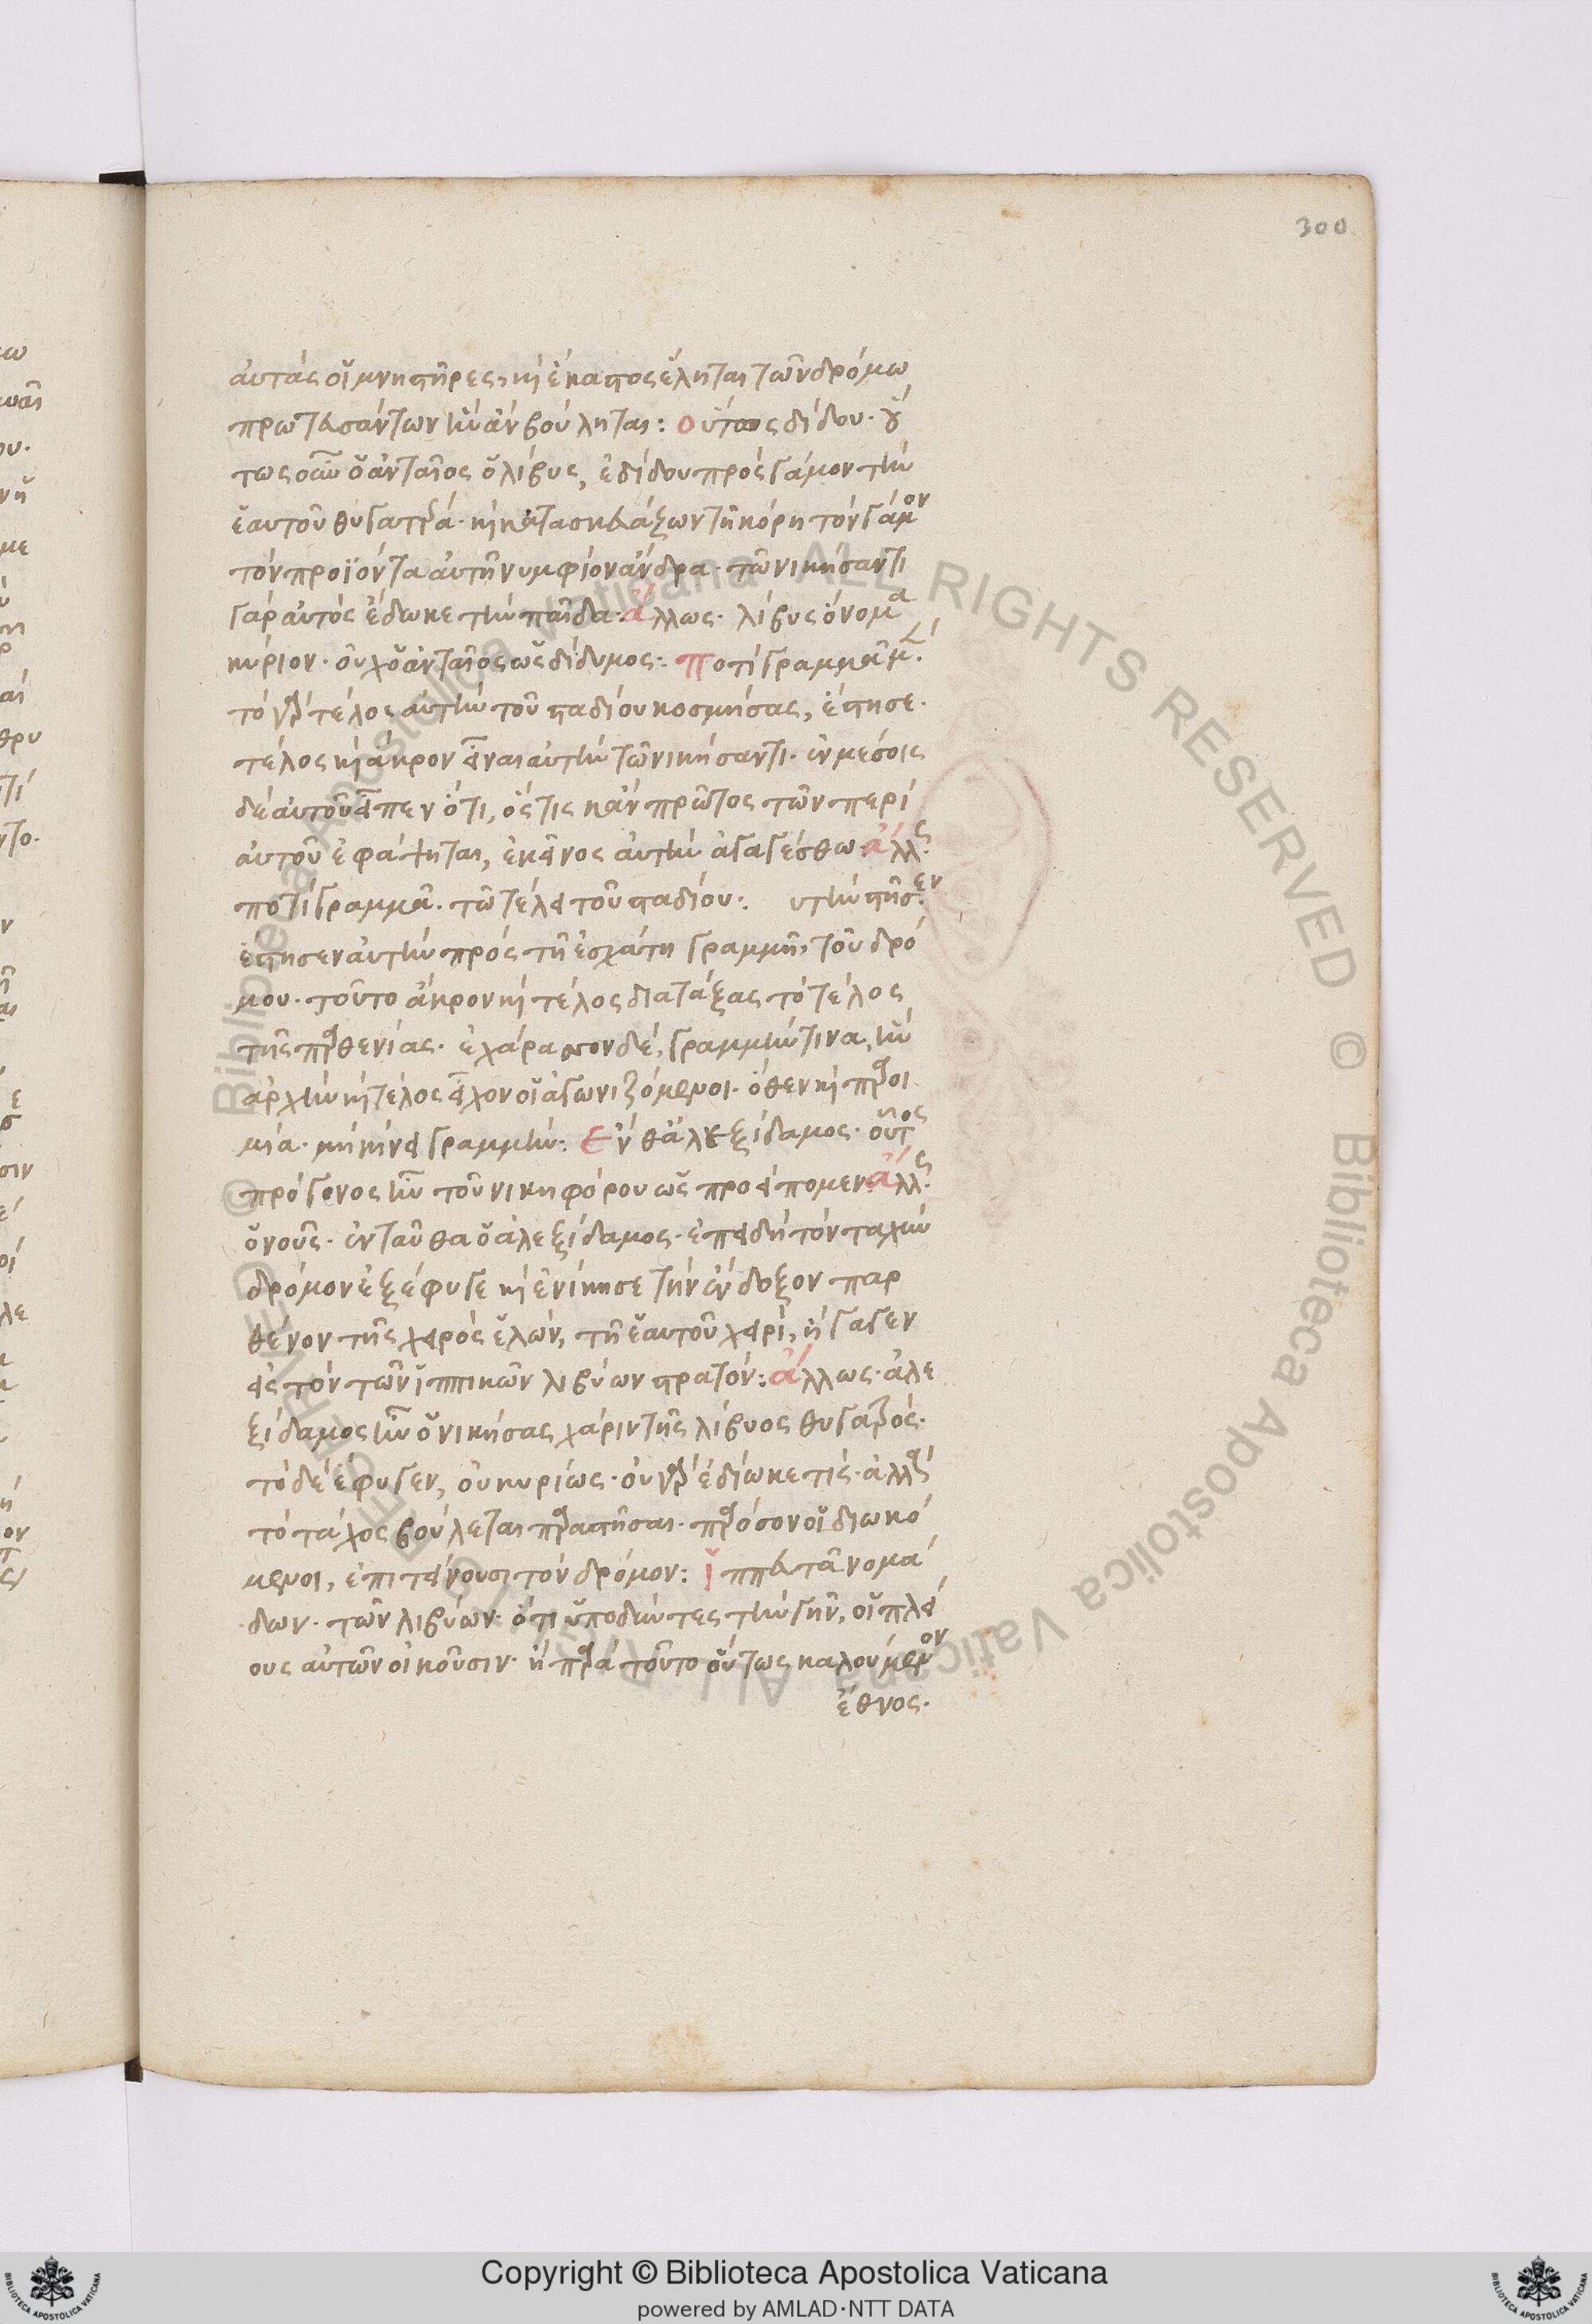 300
αὐτὰς οἱ μνηστῆρες, καὶ ἕκαστος ἕληται τῶν δρόμω
πρωτευσάντων ἣν ἂν βούληται: οὕτως δίδου· οὕ
τως οὖν ὁ ἀνταῖος ὁ λίβυς, ἐδίδου πρὸς γάμον τὴν
ἑαυτοῦ θυγατέρα· καὶ κατασκευάζων τῆ κόρη τὸν γάμον
τὸν προϊόντα αὐτῆ νυμφίον ἄνδρα· τῶ νικήσαντι
γὰρ αὐτὸς ἔδωκε τὴν παῖδα· ἄλλως· λίβυς ὄνομα
κύριον· οὐχ ὁ ἀνταῖος ὡς δίδυμος: ποτὶ γραμμᾶ μὲν
τὸ γὰρ τέλος αὐτὴν τοῦ σταδίου κοσμήσας, ἔστησε·
τέλος καὶ ἄκρον εἶναι αὐτὴν τῶ νικήσαντι· ἐν μέσοις
δὲ αὐτοῦ εἶπεν ὅτι, ὅστις κἂν πρῶτος τῶν περὶ
αὐτοῦ ἐφάψηται, ἐκεῖνος αὐτὴν ἀγαγέσθω· ἄλλως
ποτὶ γραμμᾶ· τῶ τέλει τοῦ σταδίου: υτὴν στῆσεν
ἔστησεν αὐτὴν πρὸς τῆ ἐσχάτη γραμμῆ, τοῦ δρό
μου· τοῦτο ἄκρον καὶ τέλος διατάξας τὸ τέλος
τῆς παρθενίας· ἐχάρασσον δὲ, γραμμὴν τινα, ἣν
ἀρχὴν καὶ τέλος εἶχον οἱ ἀγωνιζόμενοι· ὅθεν καὶ παροι
μία· μὴ κίνει γραμμήν: ἔνθ' ἀλεξίδαμος· οὗτος
πρόγονος ἦν τοῦ νικηφόρου ὡς προείπομεν· ἄλλως
ὁ νοῦς· ἐνταῦθα ὁ ἀλεξίδαμος· ἐπειδὴ τὸν ταχὺν
δρόμον ἐξέφυγε καὶ ἐνίκησε τὴν ἔνδοξον παρ
θένον τῆς χειρὸς ἑλών, τῆ ἑαυτοῦ χειρὶ, ἤγαγεν
εἰς τὸν τῶν ἱππικῶν λιβύων στρατόν: ἄλλως· ἀλε
ξίδαμος ἦν ὁ νικήσας χάριν τῆς λίβυος θυγατρός·
τὸ δὲ ἔφυγεν, οὐ κυρίως· οὐ γὰρ ἐδίωκε τίς· ἀλλὰ
τὸ τάχος βούλεται παραστῆσαι· παρόσον οἱ διωκό
μενοι, ἐπιτείνουσι τὸν δρόμον: ἱππευτᾶν νομά
δων· τῶν λιβύων· ὅτι ὑποδύντες τὴν γῆν, οἱ πλεί
ους αὐτῶν οἰκοῦσιν· ἢ παρὰ τοῦτο οὕτως καλούμενον
ἔθνος·
Copyright © Biblioteca Apostolica Vaticana
powered by AMLAD·NTT DATA